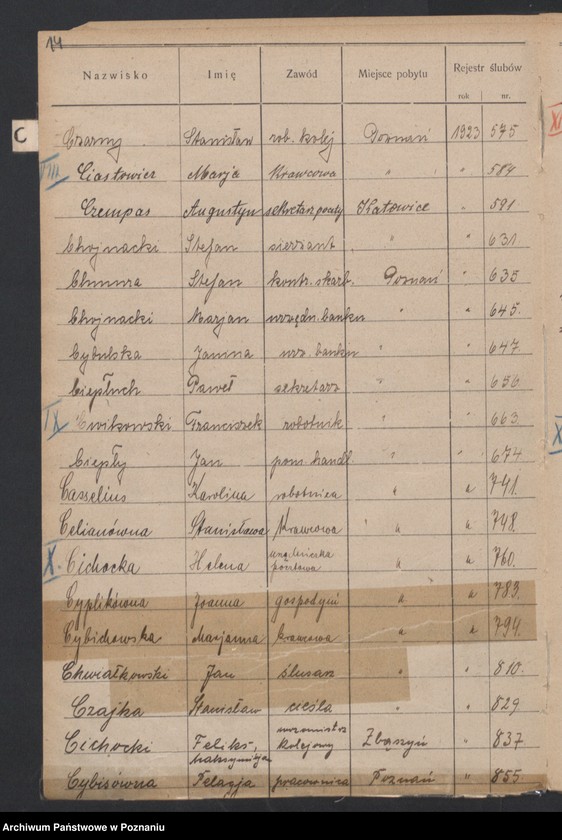 14
Nazwisko Imię Zawód Miejsce pobytu Rejestr ślubów
rok nr.
C
Czarny Stanisław rob. kolej Poznań 1923 575
VIII Ciastowicz Marja Krawcowa " " 584
Czempas Augustyn sekretarz poczty Katowice " 591
Chojnacki Stefan sierżant " " 631
Chmura Stefan kontr. skarb. Poznań " 635
Chojnacki Marjan urzędn. banku " " 645.
Cybulska Janina urz. banku " " 647.
Ciepłuch Paweł sekretarz " " 656
IX Ćwikowski Franciszek robotnik " " 663.
Ciepły Jan pom. handl. " " 674
Casselius Karolina robotnica " " 741.
Celianówna Stanisława Krawcowa " " 748.
X. Cichocka Helena urzędniczka pocztowa " " 760.
Cyplikówna Joanna gospodyni " " 783.
Cybichowska Marjanna krawcowa " " 794.
Chwiałkowski Jan ślusarz " " 810.
Czajka Stanisław cieśla " " 829
Cichocki Feliks, wozomistrz kolejowy Zbąszyń " 837
Cybisówna Pelagja pracownica Poznań " 855
Archiwum Państwowe w Poznaniu